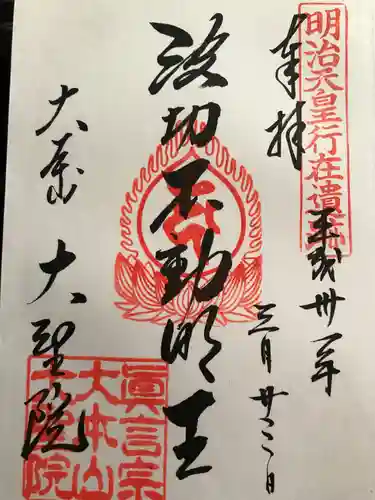 明治天皇行在遺蹟
奉拝
平成卅一年
三月廿二日
波切不動明王
大本山 大聖院
眞言宗
大本山
大聖院